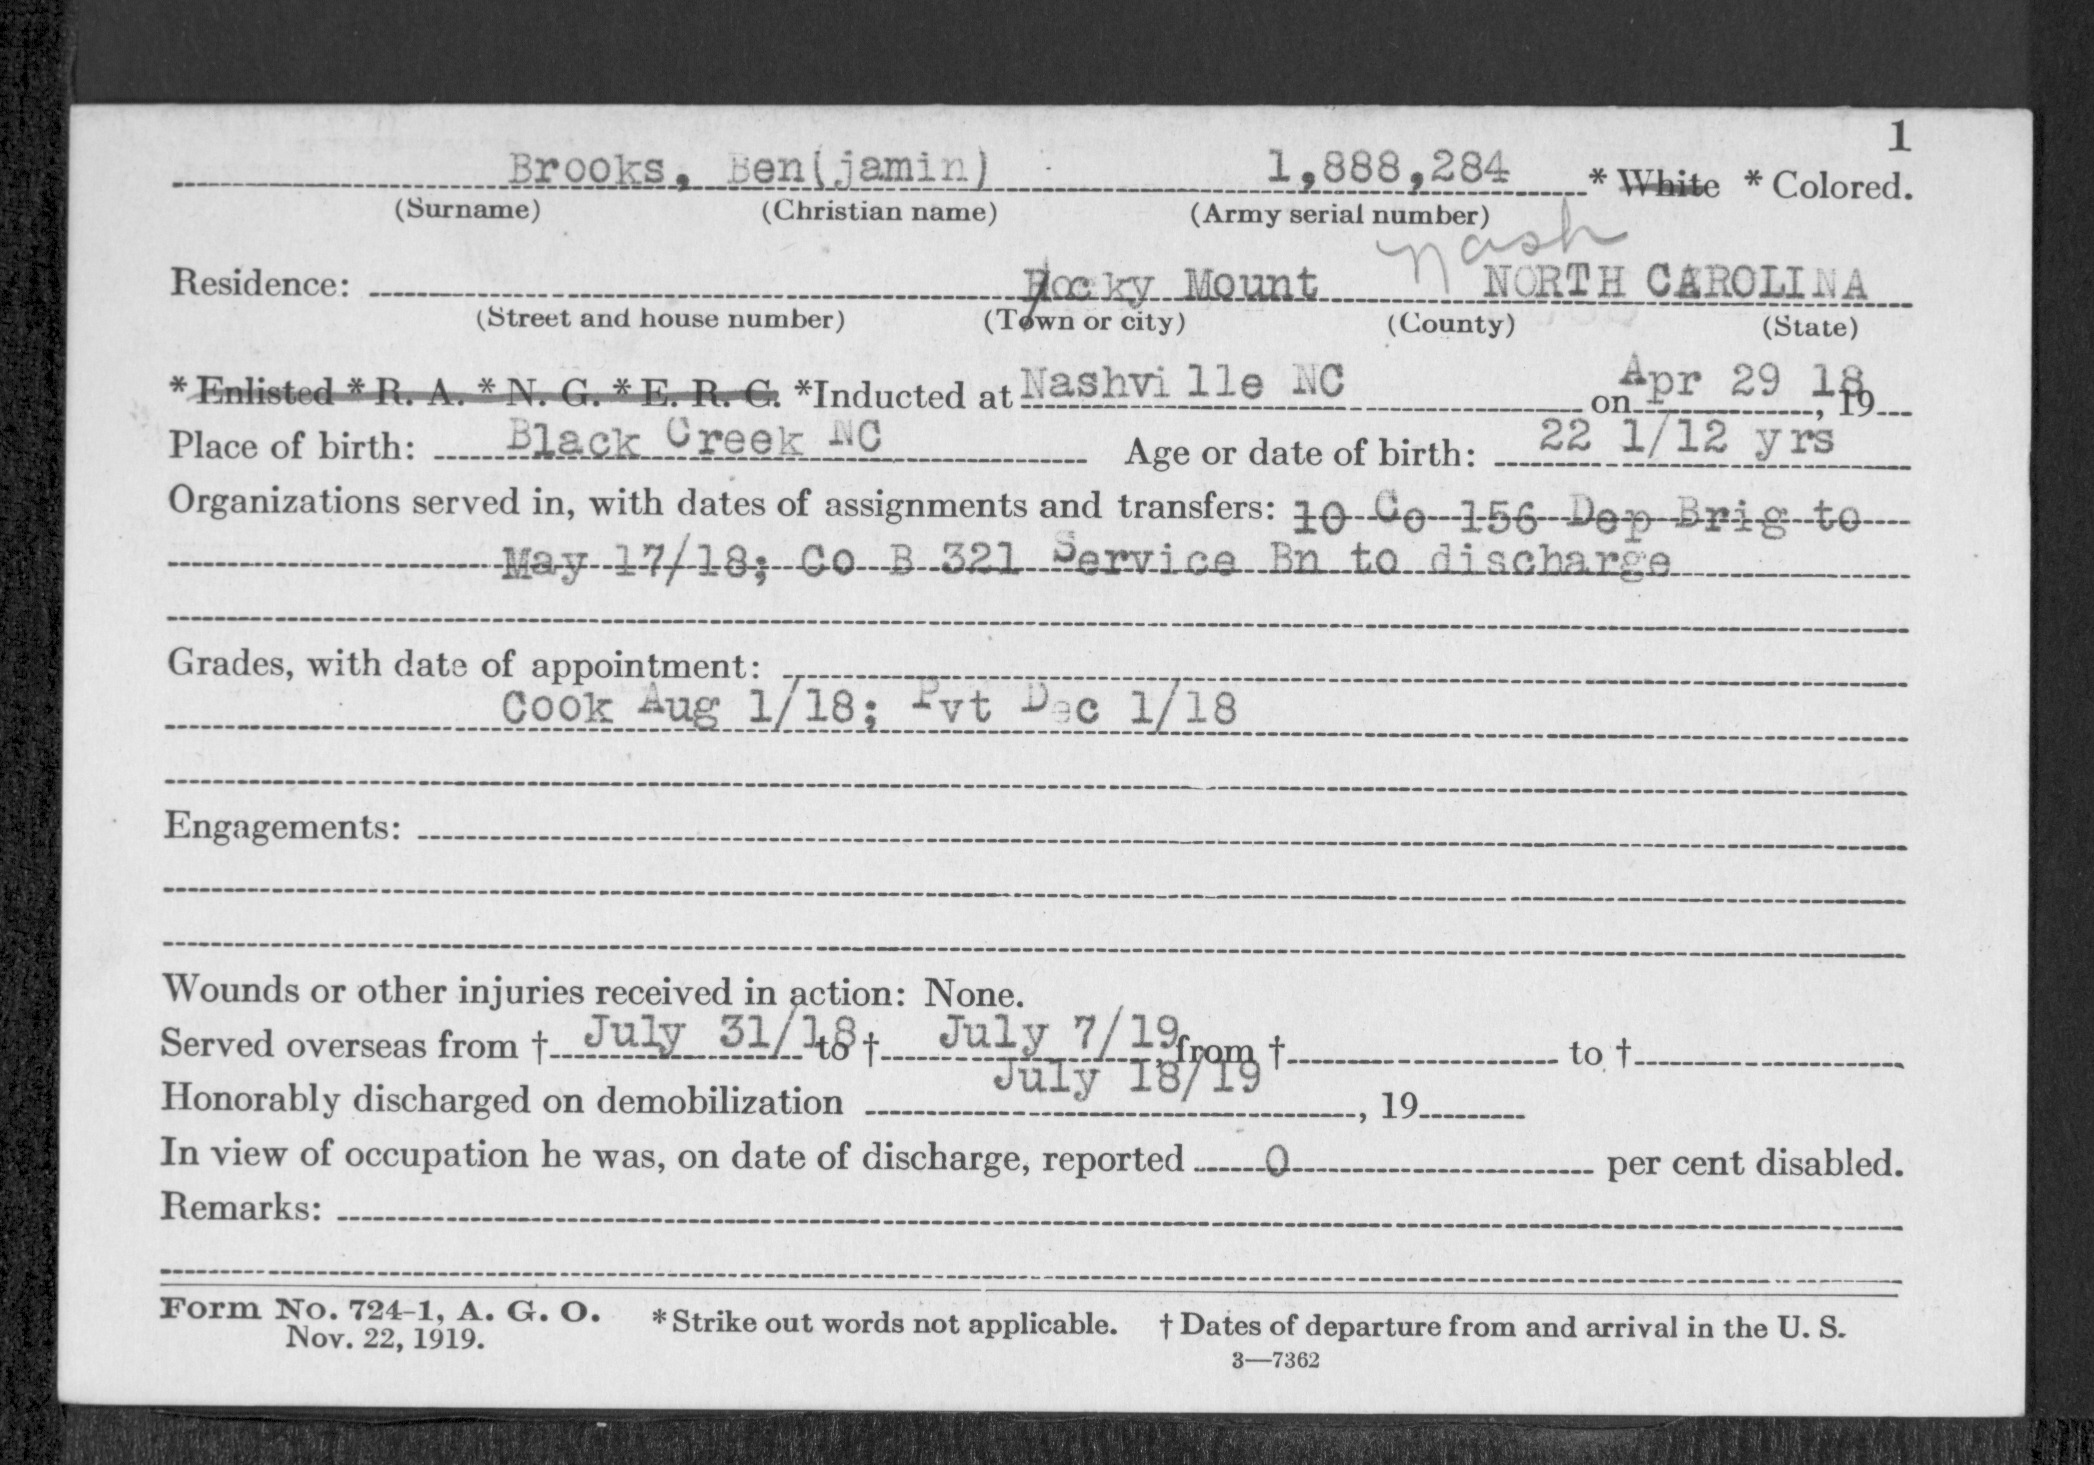 1
Brooks, Ben(jamin) 1,888,284 * White * Colored.
(Surname) (Christian name) (Army serial number)
Nash
Residence: Rocky Mount NORTH CAROLINA
(Street and house number) (Town or city) (County) (State)
* Enlisted * R. A. * N. G. * E. R. C. *Inducted at Nashville NC on Apr 29 18, 19
Place of birth: Black Creek NC Age or date of birth: 22 1/12 yrs
Organizations served in, with dates of assignments and transfers: 10 Co 156 Dep Brig to
May 17/18; Co B 321 Service Bn to discharge
Grades, with date of appointment:
Cook Aug 1/18; Pvt Dec 1/18
Engagements:
Wounds or other injuries received in action: None.
Served overseas from † July 31/18 to † July 7/19, from † to †
Honorably discharged on demobilization July 18/19, 19
In view of occupation he was, on date of discharge, reported 0 per cent disabled.
Remarks:
Form No. 724-1, A. G. O. * Strike out words not applicable. † Dates of departure from and arrival in the U. S.
Nov. 22, 1919.
3—7362